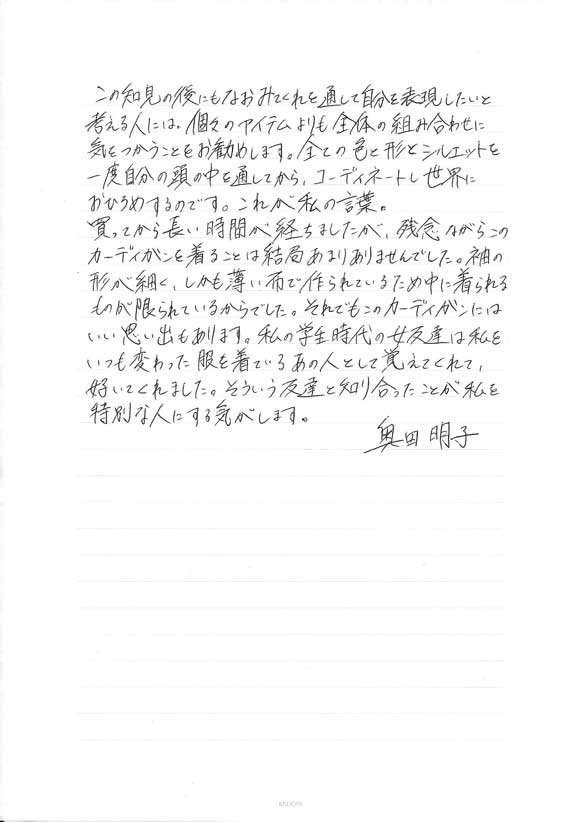 この知見の後にもなおみてくれを通して自分を表現したいと
考える人には、個々のアイテムよりも全体の組み合わせに
気をつかうことをお勧めします。全ての色と形とシルエットを
一度自分の頭の中を通してから、コーディネートし世界に
おひろめするのです。これが私の言葉。
買ってから長い時間が経ちましたが、残念ながらこの
カーディガンを着ることは結局あまりありませんでした。袖の
形が細く、しかも薄い布で作られているため中に着られる
ものが限られているからでした。それでもこのカーディガンには
いい思い出もあります。私の学生時代の女友達は私を
いつも変わった服を着ているあの人として覚えてくれて、
好いてくれました。そういう友達と知り合ったことが私を
特別な人にする気がします。
奥田明子
MIDORI